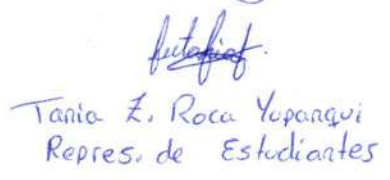 Tania Z. Roca Yupanqui
Repres. de Estudiantes